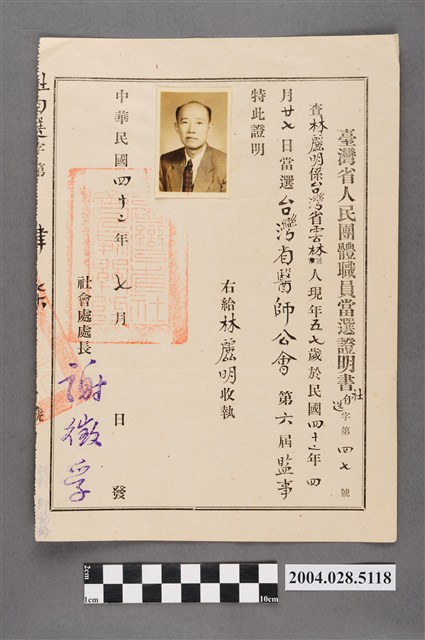 臺灣省人民團體職員當選證明書 社 選字第四七號
查林麗明係台灣省雲林縣人現年五七歲於民國四十二年四
月廿七日當選台灣省醫師公會第六屆監事
特此證明
右給林麗明收執
社會處處長 謝徵孚
中華民國四十二年七月 日發
2cm
1cm
10cm
2004.028.5118